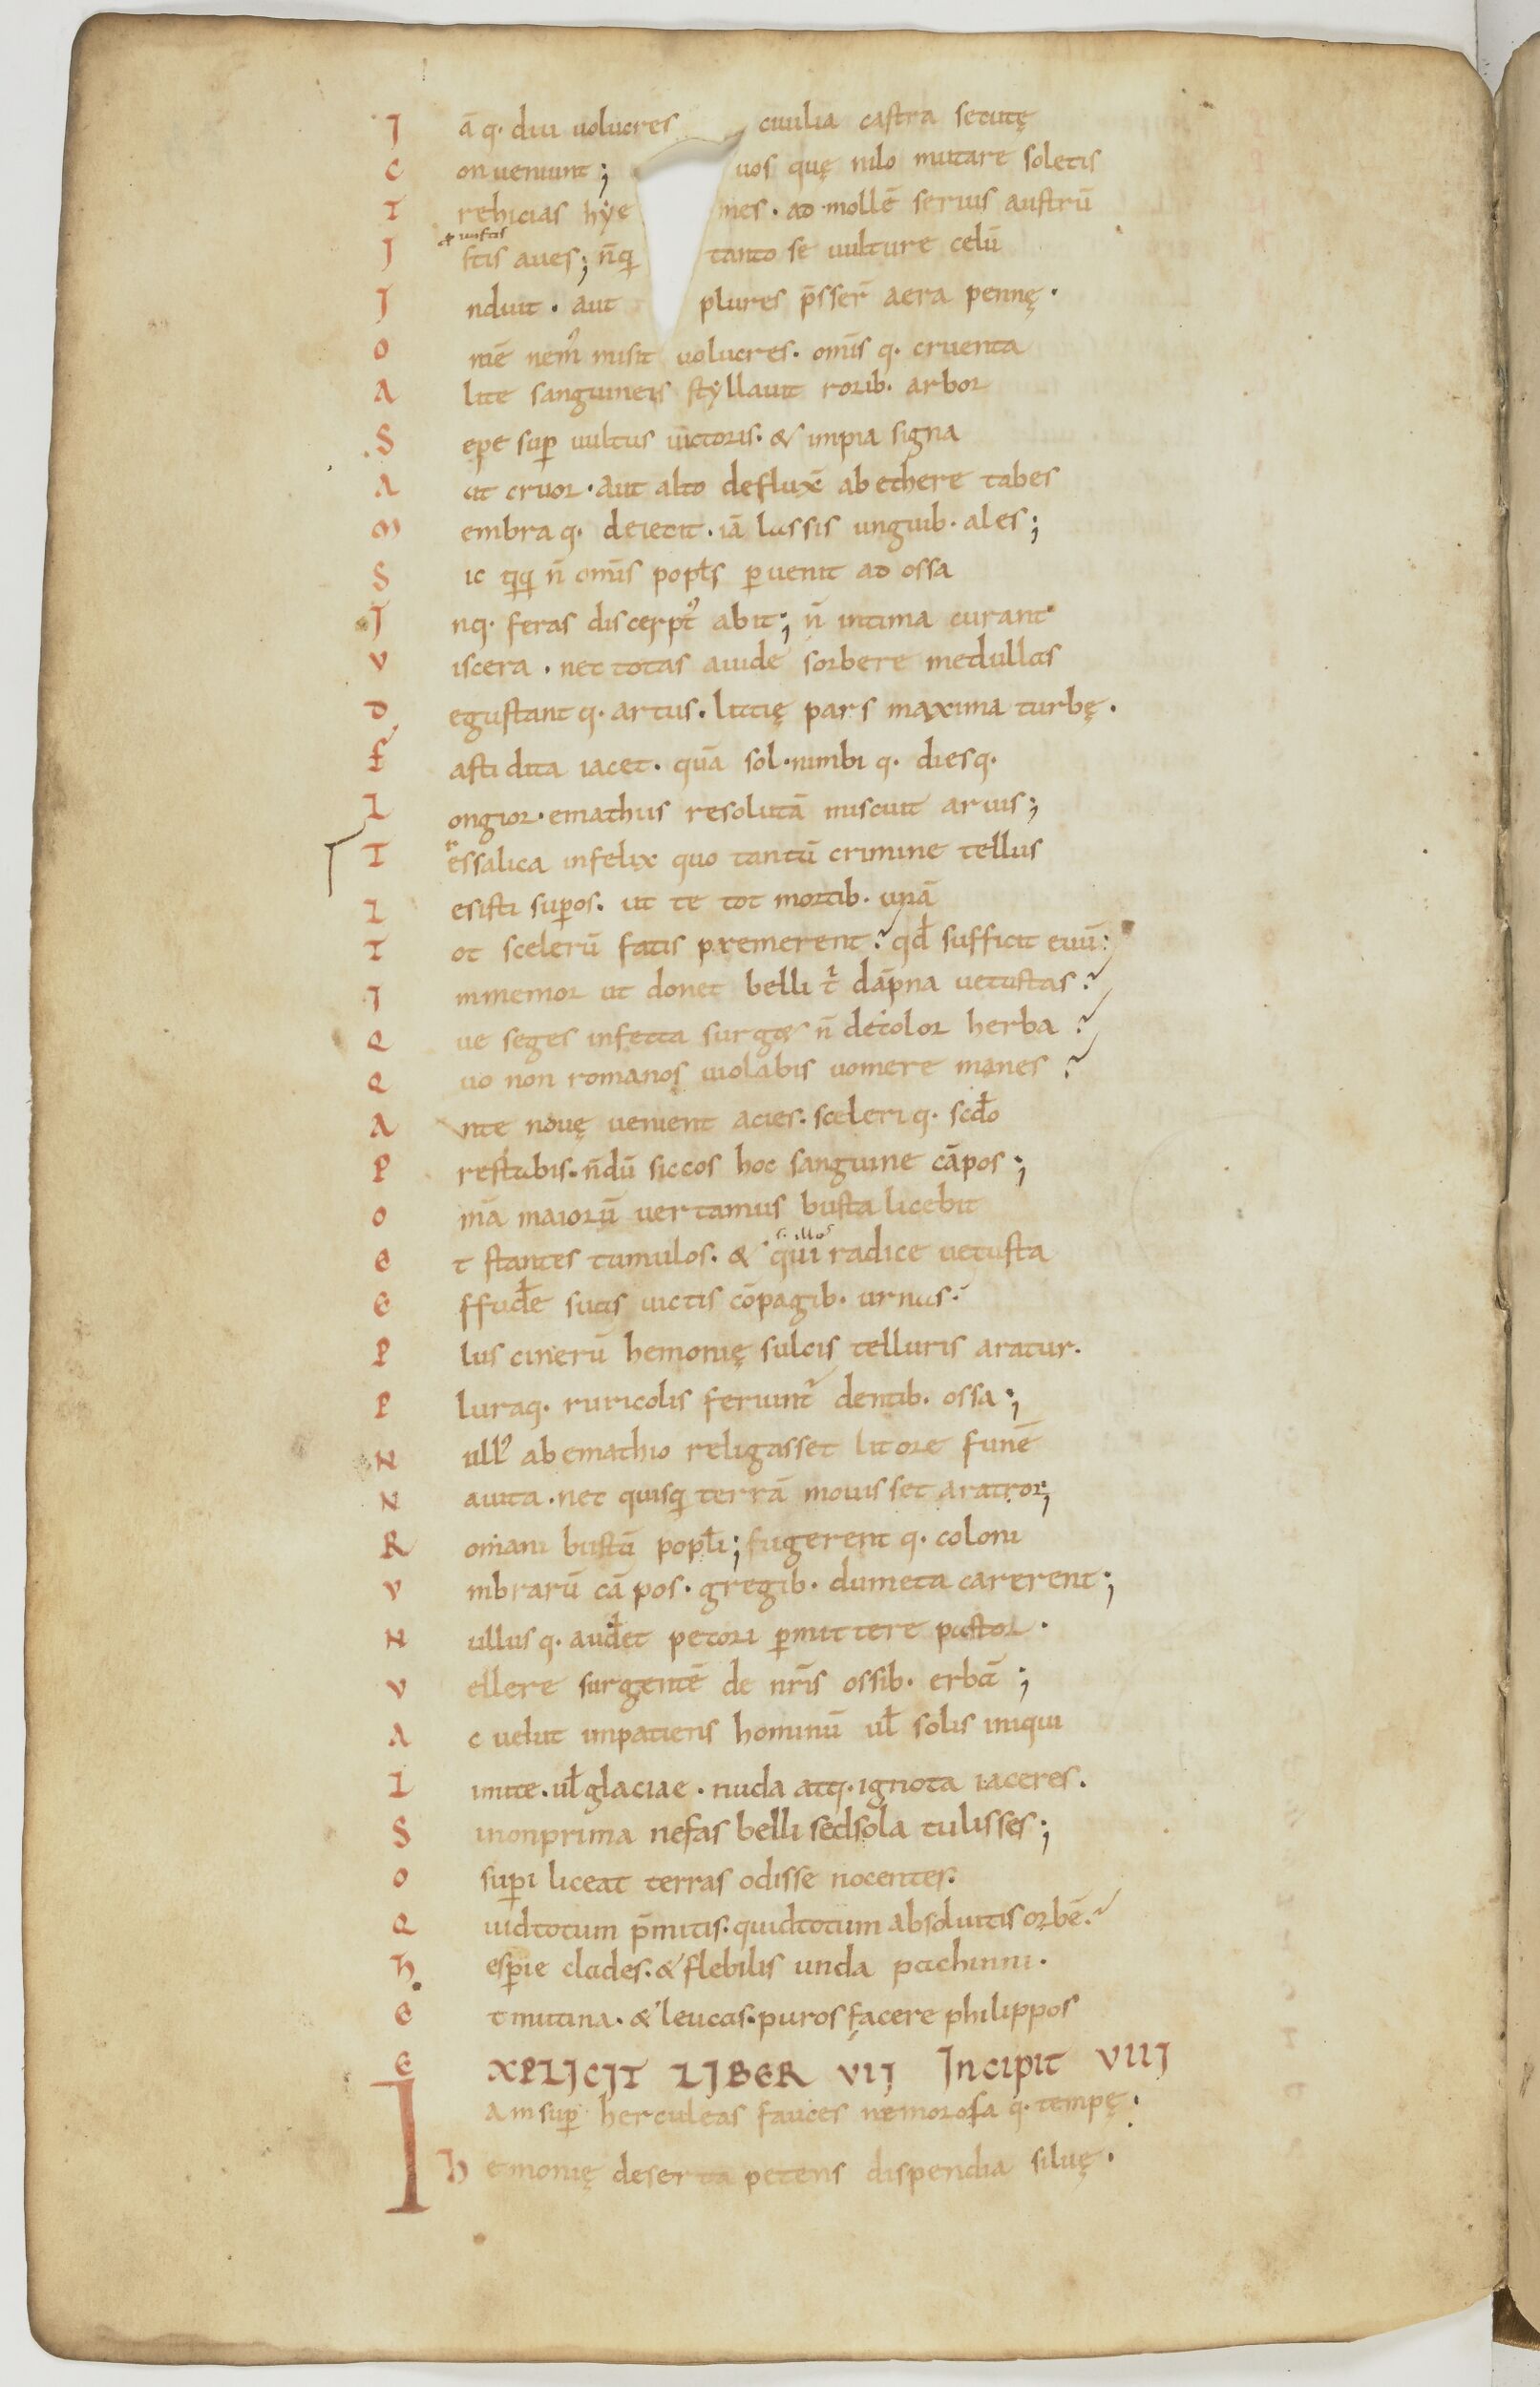 J ā q. diu uolucres ciuilia castra secutę
C onueniunt; uos quę nilo mutare soletis
T rehicias hẏe mes. ad mollē serius austrū
J stis aues; n̄q; tanto se uulture celū
J nduit. aut plures p̄sser̄ aera pennę.
O mē nem' misit uolucres. om̄is q. cruenta
A lite sanguineis stẏllauit rorib. arbor
S epe sup uultus uictoris. & impia signa
A ut cruor. aut alto deflux̄ ab ethere tabes
M embra q. deiecit. iā lassis unguib. ales;
S ic qq n̄ om̄is popl̄s puenit ad ossa
J nq. feras discerpt' abit; n̄ intima curant
V iscera. nec totas auide sorbere medullas
D egustant q. artus. latię pars maxima turbę.
F astidita iacet. quā sol. nimbi q. dies q.
L ongior. emathiis resolutā miscuit aruis;
T essalica infelix quo tantū crimine tellus
L esisti supos. ut te tot mortib. unā
T ot scelerū fatis premerent? qd̄ sufficit euū?
J mmemor ut donet belli t' dāpna uetustas?
Q ue seges infecta surg& n̄ decolor herba?
Q uo non romanos uiolabis uomere manes?
A nte nouę uenient acies. sceleri q. scd̄o
P restabis. n̄dū siccos hoc sanguine cāpos;
O mā maiorū uertamus busta licebit
s. illos
E t stantes tumulos. & qui radice uetusta
E ffud̄e suas uictis cōpagib. urnas.
P lus cinerū hemonię sulcis telluris aratur.
P luraq. ruricolis feriunt' dentib. ossa;
N ull' ab emathio religasset litore funē
N auita. nec quisq; terrā mouisset arator;
R omani bustū popl̄i; fugerent q. coloni
V mbrarū cāpos. gregib. dumeta carerent;
N ullus q. aud̄et pecori pmittere pastor.
V ellere surgentē de nr̄is ossib. erbā;
A c uelut impatiens hominū ul̄ solis iniqui
L imite. ul̄ glaciae. nuda atq. ignota iaceres.
S i non prima nefas belli sed sola tulisses;
O supi liceat terras odisse nocentes.
Q uid totum p̄mitis. quid totum absoluitis orbē.
H espie clades. & flebilis unda pachinni.
E t mutina. & leucas. puros facere philippos
E XPLJCJT LJBER VIJ Jncipit VIIJ
I am sup herculeas fauces nemorosa q. tempę.
H emonię deserta petens dispendia siluę.